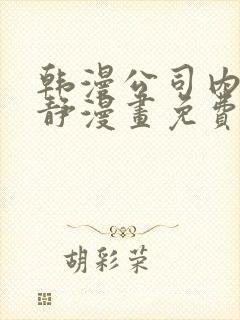 韩漫公司内
静漫畫免費
胡彩荣